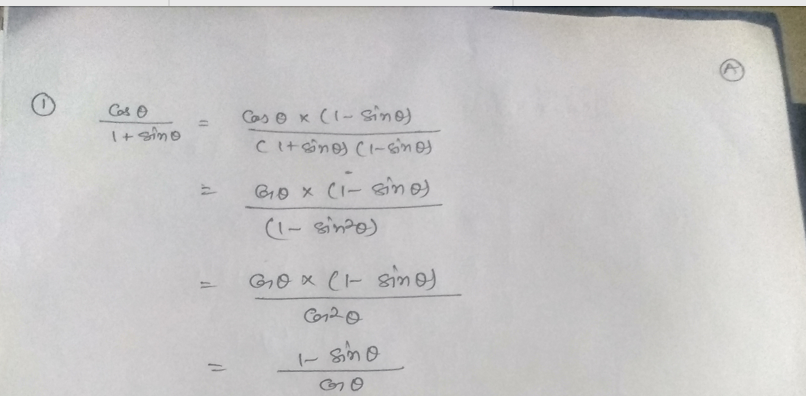 Ⓐ
① cos θ / 1 + sin θ = cos θ × (1 - sin θ) / (1 + sin θ) (1 - sin θ)
= cos θ × (1 - sin θ) / (1 - sin²θ)
= cos θ × (1 - sin θ) / cos²θ
= 1 - sin θ / cos θ